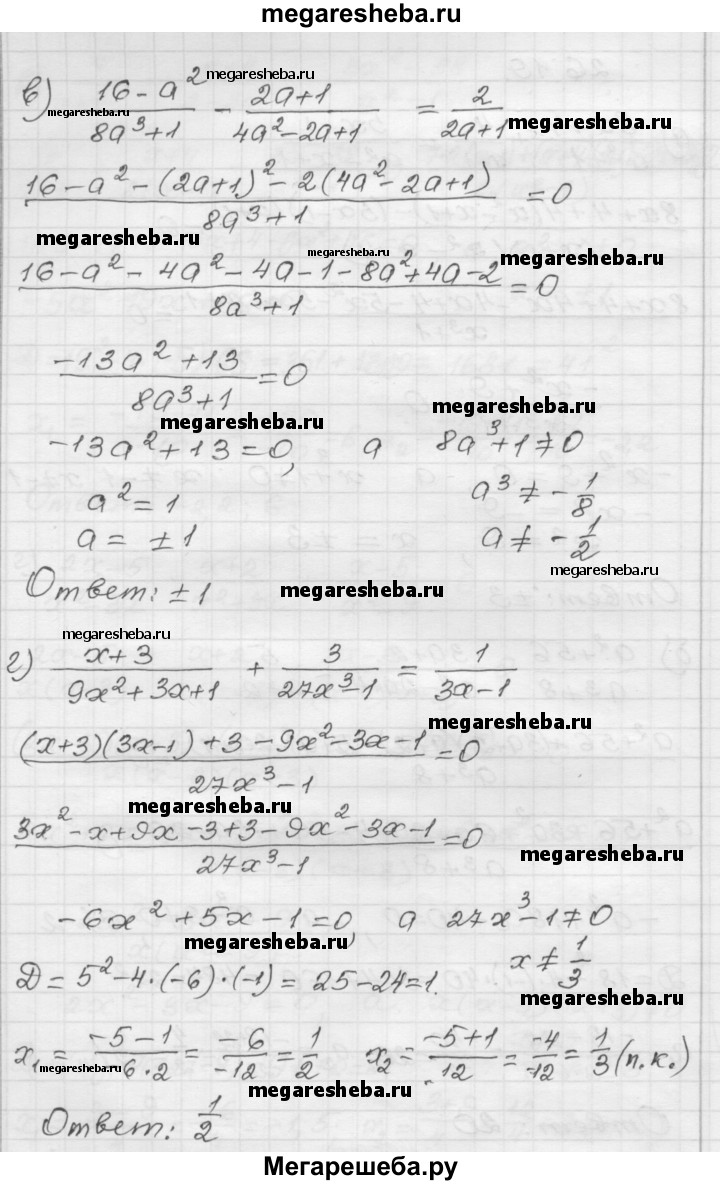 megaresheba.ru
в) (16-a²)/(8a³+1) - (2a+1)/(4a²-2a+1) = 2/(2a+1)
megaresheba.ru
megaresheba.ru
megaresheba.ru
(16-a²-(2a+1)²-2(4a²-2a+1))/(8a³+1) =0
megaresheba.ru
megaresheba.ru
megaresheba.ru
(16-a²-4a²-4a-1-8a²+4a-2)/(8a³+1) =0
(-13a²+13)/(8a³+1) =0
megaresheba.ru
megaresheba.ru
-13a²+13=0, а 8a³+1≠0
a²=1 a³≠-1/8
a=±1 a≠-1/2
megaresheba.ru
Ответ: ±1 megaresheba.ru
megaresheba.ru
г) (x+3)/(9x²+3x+1) + 3/(27x³-1) = 1/(3x-1)
megaresheba.ru
((x+3)(3x-1)+3-9x²-3x-1)/(27x³-1) =0
megaresheba.ru
(3x²-x+9x-3+3-9x²-3x-1)/(27x³-1) =0
megaresheba.ru
-6x²+5x-1=0, а 27x³-1≠0
megaresheba.ru
Д=5²-4·(-6)·(-1)=25-24=1. x≠1/3
megaresheba.ru
x₁= (-5-1)/(-6·2) = -6/-12 = 1/2 x₂= (-5+1)/-12 = -4/-12 = 1/3 (п.к.)
megaresheba.ru
megaresheba.ru
Ответ: 1/2
Мегарешеба.ру